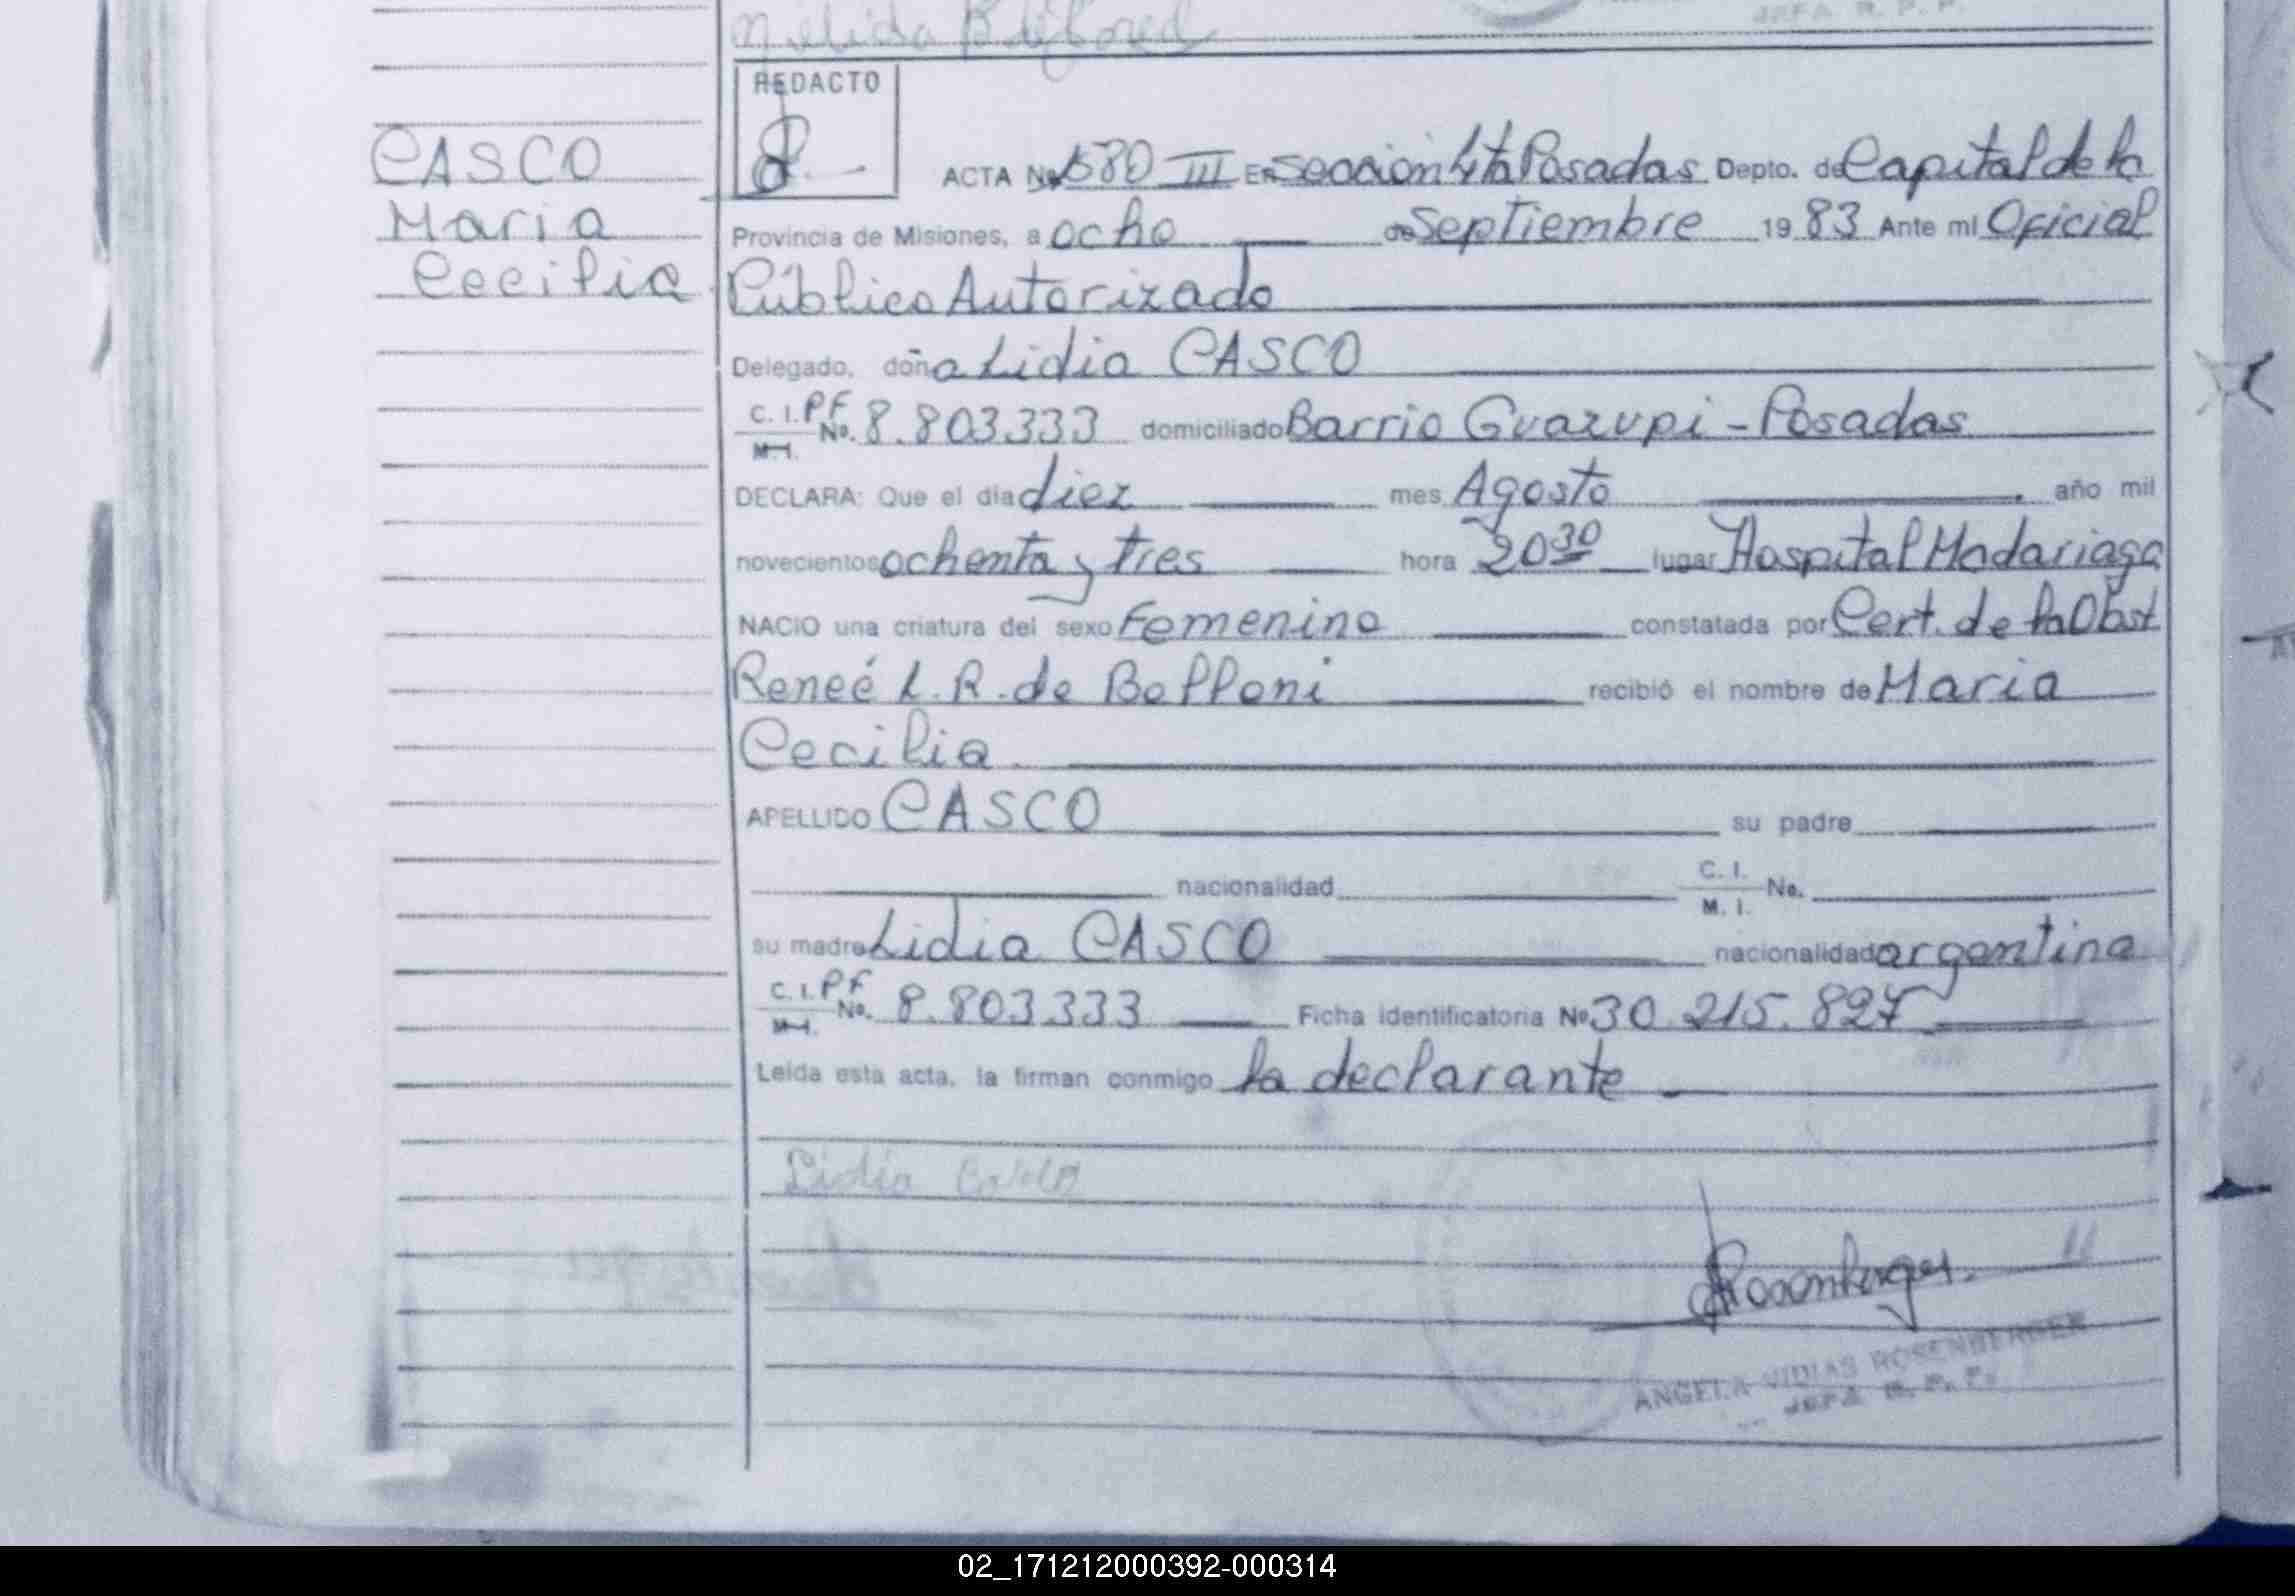 JEFA R. P. P.
REDACTO
CASCO
Maria
Cecilia
ACTA No 580 III En Sección 4ta Posadas Depto. de Capital de la
Provincia de Misiones, a ocho de Septiembre 19 83 Ante mi Oficial
Público Autorizado
Delegado, doña Lidia CASCO
C. I. P F
M. I. No. 8.803.333 domiciliado Barrio Guazupi - Posadas
DECLARA: Que el día diez mes Agosto año mil
novecientos ochenta y tres hora 20 30 lugar Hospital Madariaga
NACIO una criatura del sexo Femenino constatada por Cert. de la Obst
Reneé L. R. de Belloni recibió el nombre de Maria
Cecilia
APELLIDO CASCO su padre
nacionalidad C. I.
M. I. No.
su madre Lidia CASCO nacionalidad argentina
C. I. P F
M. I. No. 8.803.333 Ficha identificatoria No 30.215.827
Leída esta acta, la firman conmigo la declarante
Lidia Casco
Rosenberger
ANGELA VIDIAS ROSENBERGER
JEFA R. P. P.
02_171212000392-000314